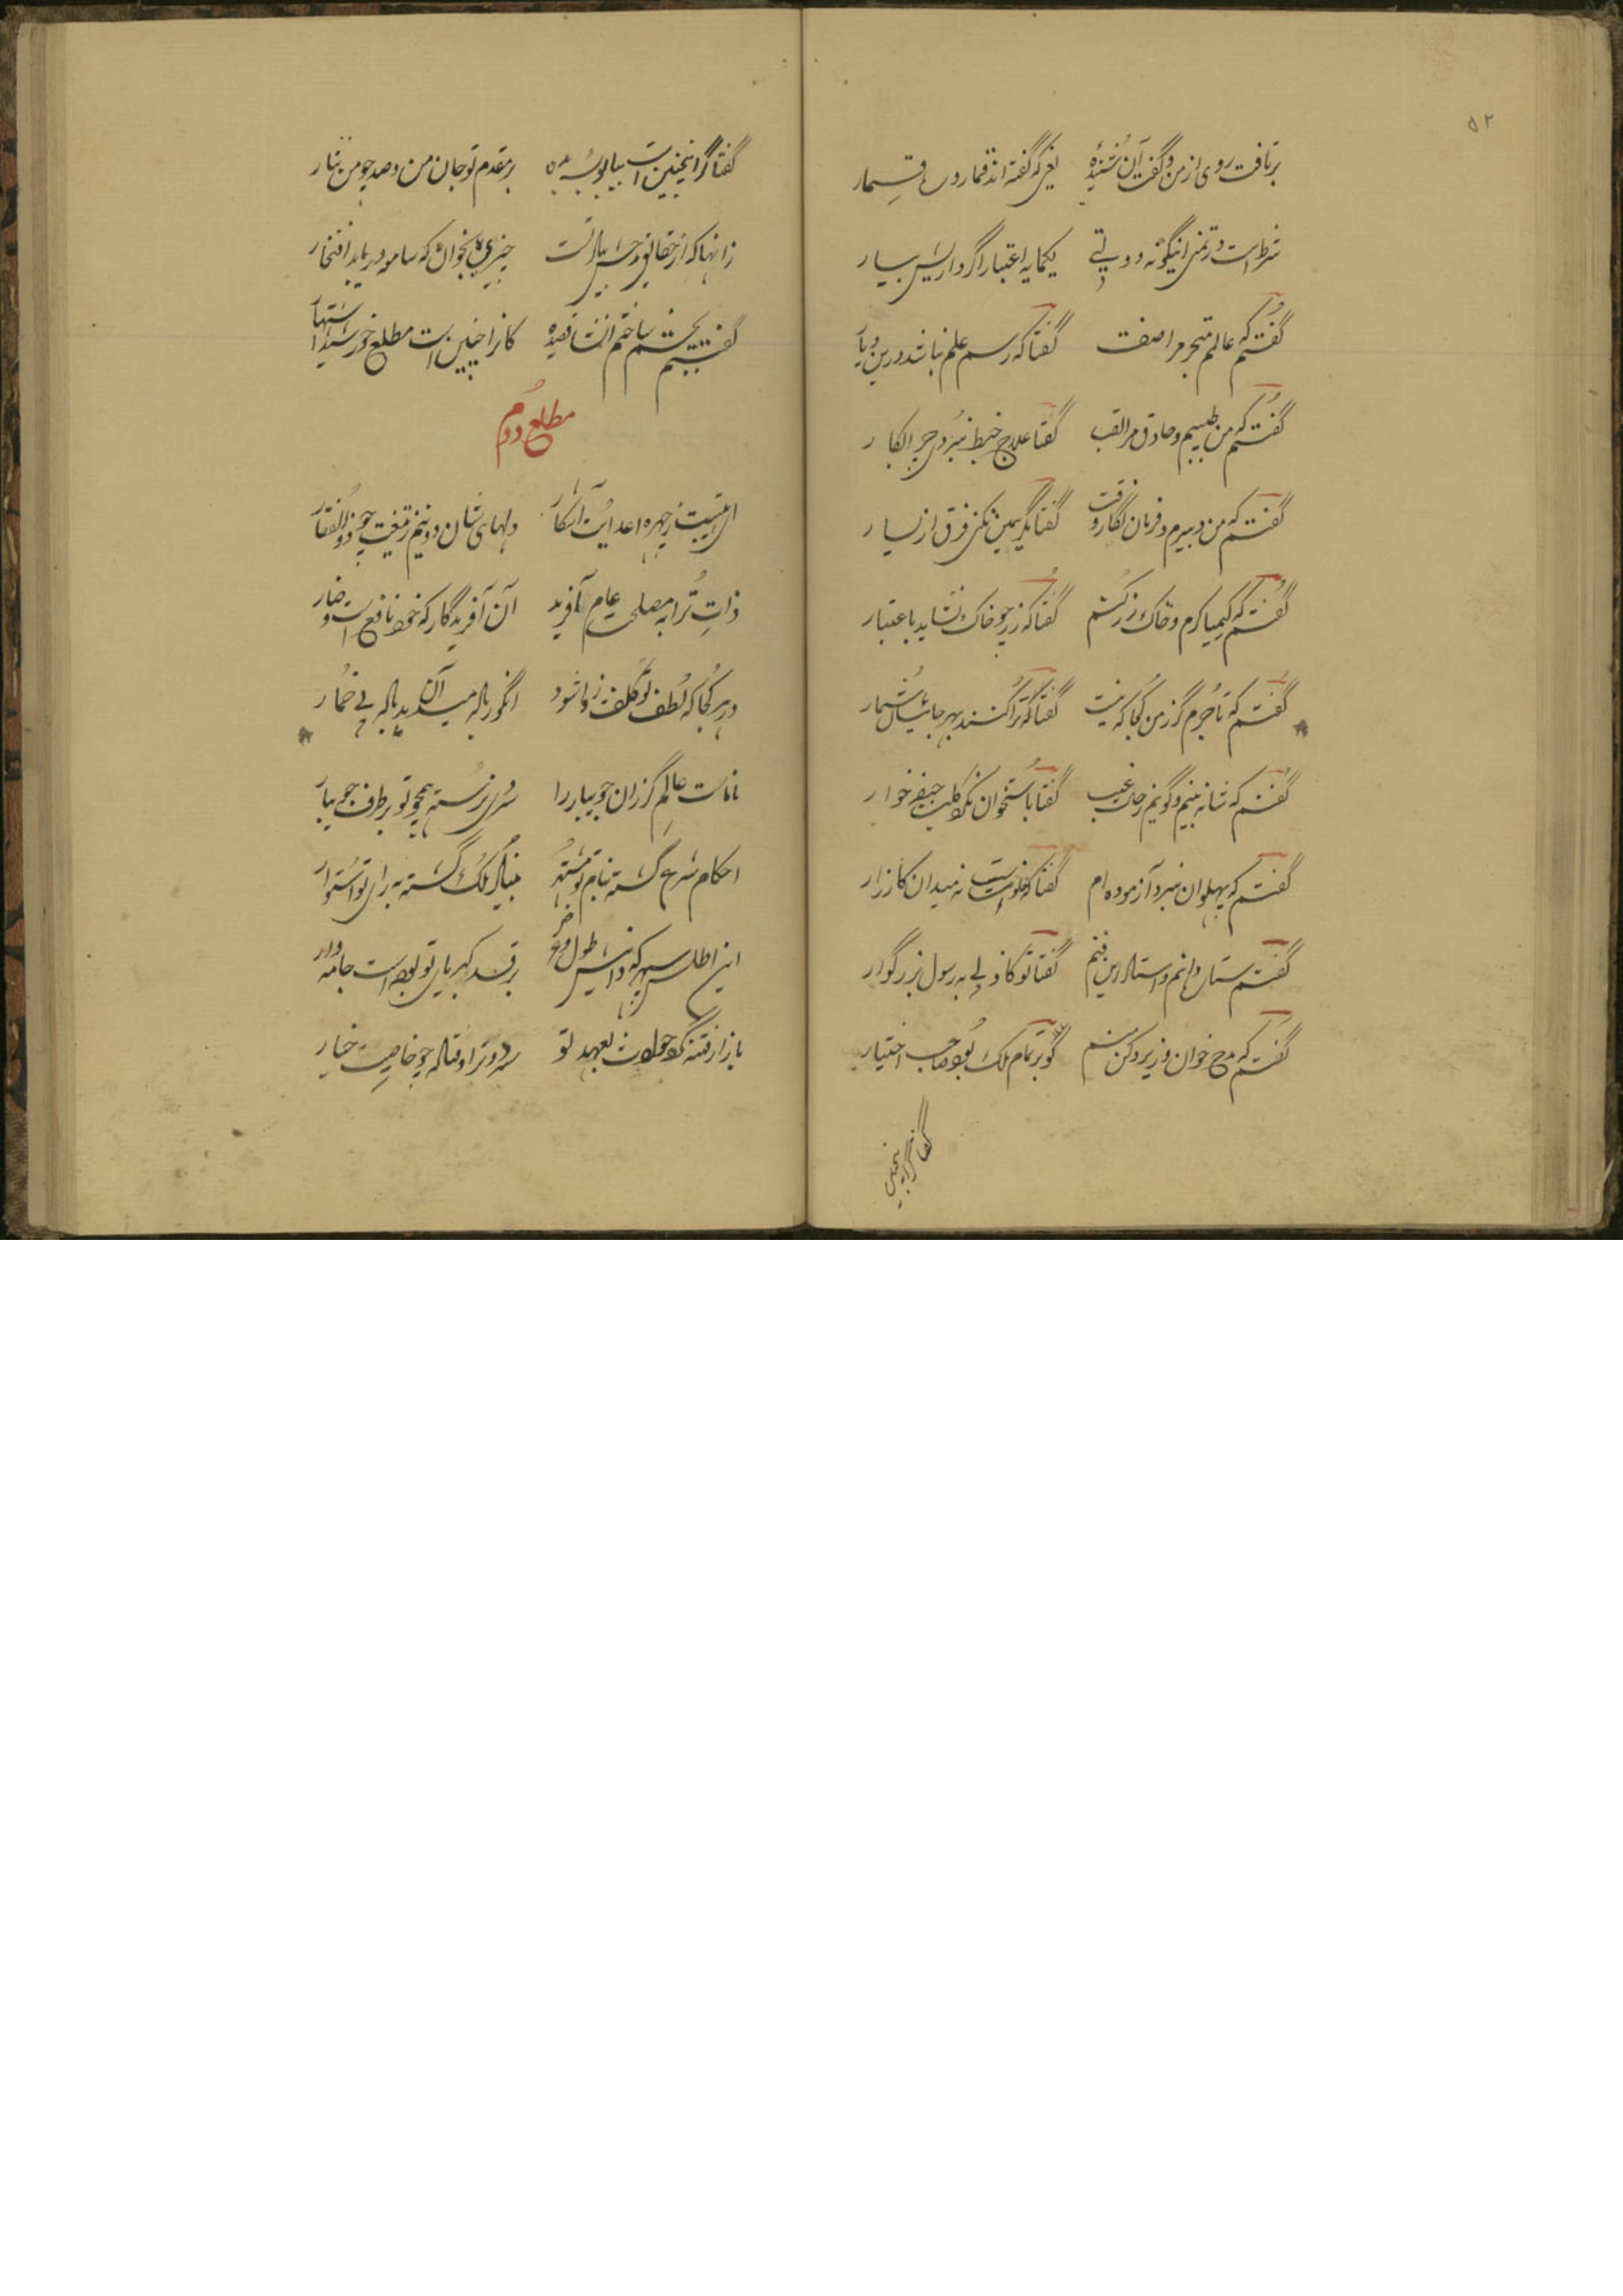 ۵۲
برتافت روی از من و گفت آن نشنیدهٔ یعنی که گفته‌اند قمار و ره قمار
شرط است در تمنی اینگونه دولتی یکمایه اعتبار اگر داری بیار
گفتم که عالم متبحر مرا صفت گفتا که رسم علم نباشد درین دیار
گفتم که من طبیبم و حاذق مرا لقب گفتا علاج خبط نبرد
گفتم که من دبیرم و فرمان نگار وقت گفتا مگر یمین نکنی فرق از یسار
گفتم که کیمیاگرم و خاک زر کنم گفتا که زر چو خاک نشاید باعتبار
گفتم که تاجرم گذر من کجا که نیست گفتا که ترا کنند بهر جا شمار
گفتم که شانه بینم و گویم ز حال غیب گفتا باستخوان نگرد کلب جیفه خوار
گفتم که پهلوان نبرد آزموده‌ام گفتا که خلوتست نه میدان کارزار
گفتم ستاره دانم و استاد این فنم گفتا تو کاذبی به رسول بزرگوار
گفتم که مدح خوان وزیر دکن منم کو بر تمام ملک بود صاحب اختیار
گفتا گر اینچنین
گفتا گر اینچنین است بیا بوسه بر مقدم تو جان من و صد چو من نثار
زانها که از حقایق مدحش بیاد تست چیزی بخوان که سامعه دریابد افتخار
گفتم بچشم ساختم انشا قصیده کانرا چنین است مطلع خورشید اشتهار
مطلع دوم
ای هیبتت ز چهره اعدایت آشکار دلهای شان دو نیم ز تیغت چو ذوالفقار
ذات ترا به مصلحت عام آفرید آن آفریدگار که خود نافع است و ضار
در هر کجا که لطف تو کلفت زدا شود انگور باله میدهد آنجا پیاله بی خمار
عالم گذران جویبار را سروی نرسته همچو تو بر طرف جویبار
احکام شرع گشته بنام تو مشتهر بنیاد ملک گشته به رای تو استوار
این اطلس سپهر که دانیش طول و عرض بر قد کبریای تو بوده است جامه‌وار
بازار فتنه گر حوادث بعهد تو سرد و تر اوفتاده چو خاصیت خیار